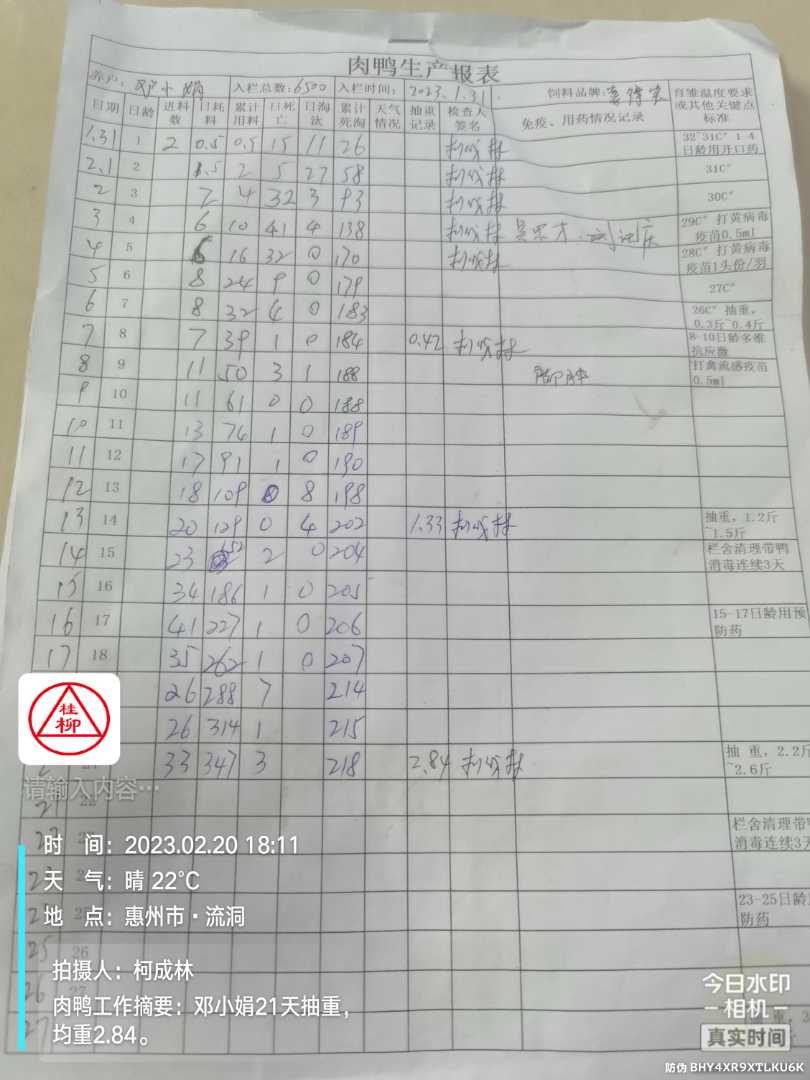 肉鸭生产报表
养户: 邓小娟 入栏总数:6500 入栏时间: 2023.1.31 饲料品牌: 育雏温度要求或其他关键点标准
日期 日龄 进料数 日耗料 累计用料 日死亡 日淘汰 累计死淘 天气情况 抽重记录 检查人签名 免疫、用药情况记录
1.31 1 2 0.5 0.5 15 11 26 32~31C° 1-4日龄用开口药
2.1 2 1.5 2 5 27 58 31C°
2 3 2 4 32 3 93 30C°
3 4 6 10 41 4 138 29C° 打黄病毒疫苗0.5ml
4 5 6 16 32 0 170 28C° 打黄病毒疫苗1头份/羽
5 6 8 24 9 0 179 27C°
6 7 8 32 4 0 183 26C° 抽重，0.3斤~0.4斤
7 8 7 39 1 0 184 0.42 8-10日龄多维抗应激
8 9 11 50 3 1 188 打禽流感疫苗0.5ml
9 10 11 61 0 0 188
10 11 13 74 1 0 189
11 12 17 91 1 0 190
12 13 18 109 0 8 198
13 14 20 129 0 4 202 1.33 抽重，1.2斤~1.5斤
14 15 23 152 2 0 204 栏舍清理带鸭消毒连续3天
15 16 34 186 1 0 205
16 17 41 227 1 0 206 15-17日龄用预防药
17 18 35 262 1 0 207
26 288 7 214
26 314 1 215
33 347 3 218 2.84 抽重，2.2斤~2.6斤
桂柳
请输入内容…
21 22
22 栏舍清理带鸭消毒连续3天
23
25 23-25日龄 防药
25 26
26 27
27
时 间：2023.02.20 18:11
天 气：晴 22℃
地 点：惠州市·流洞
拍摄人：柯成林
肉鸭工作摘要：邓小娟21天抽重，
均重2.84。
今日水印
相机
真实时间
防伪 BHY4XR9XTLKU6K